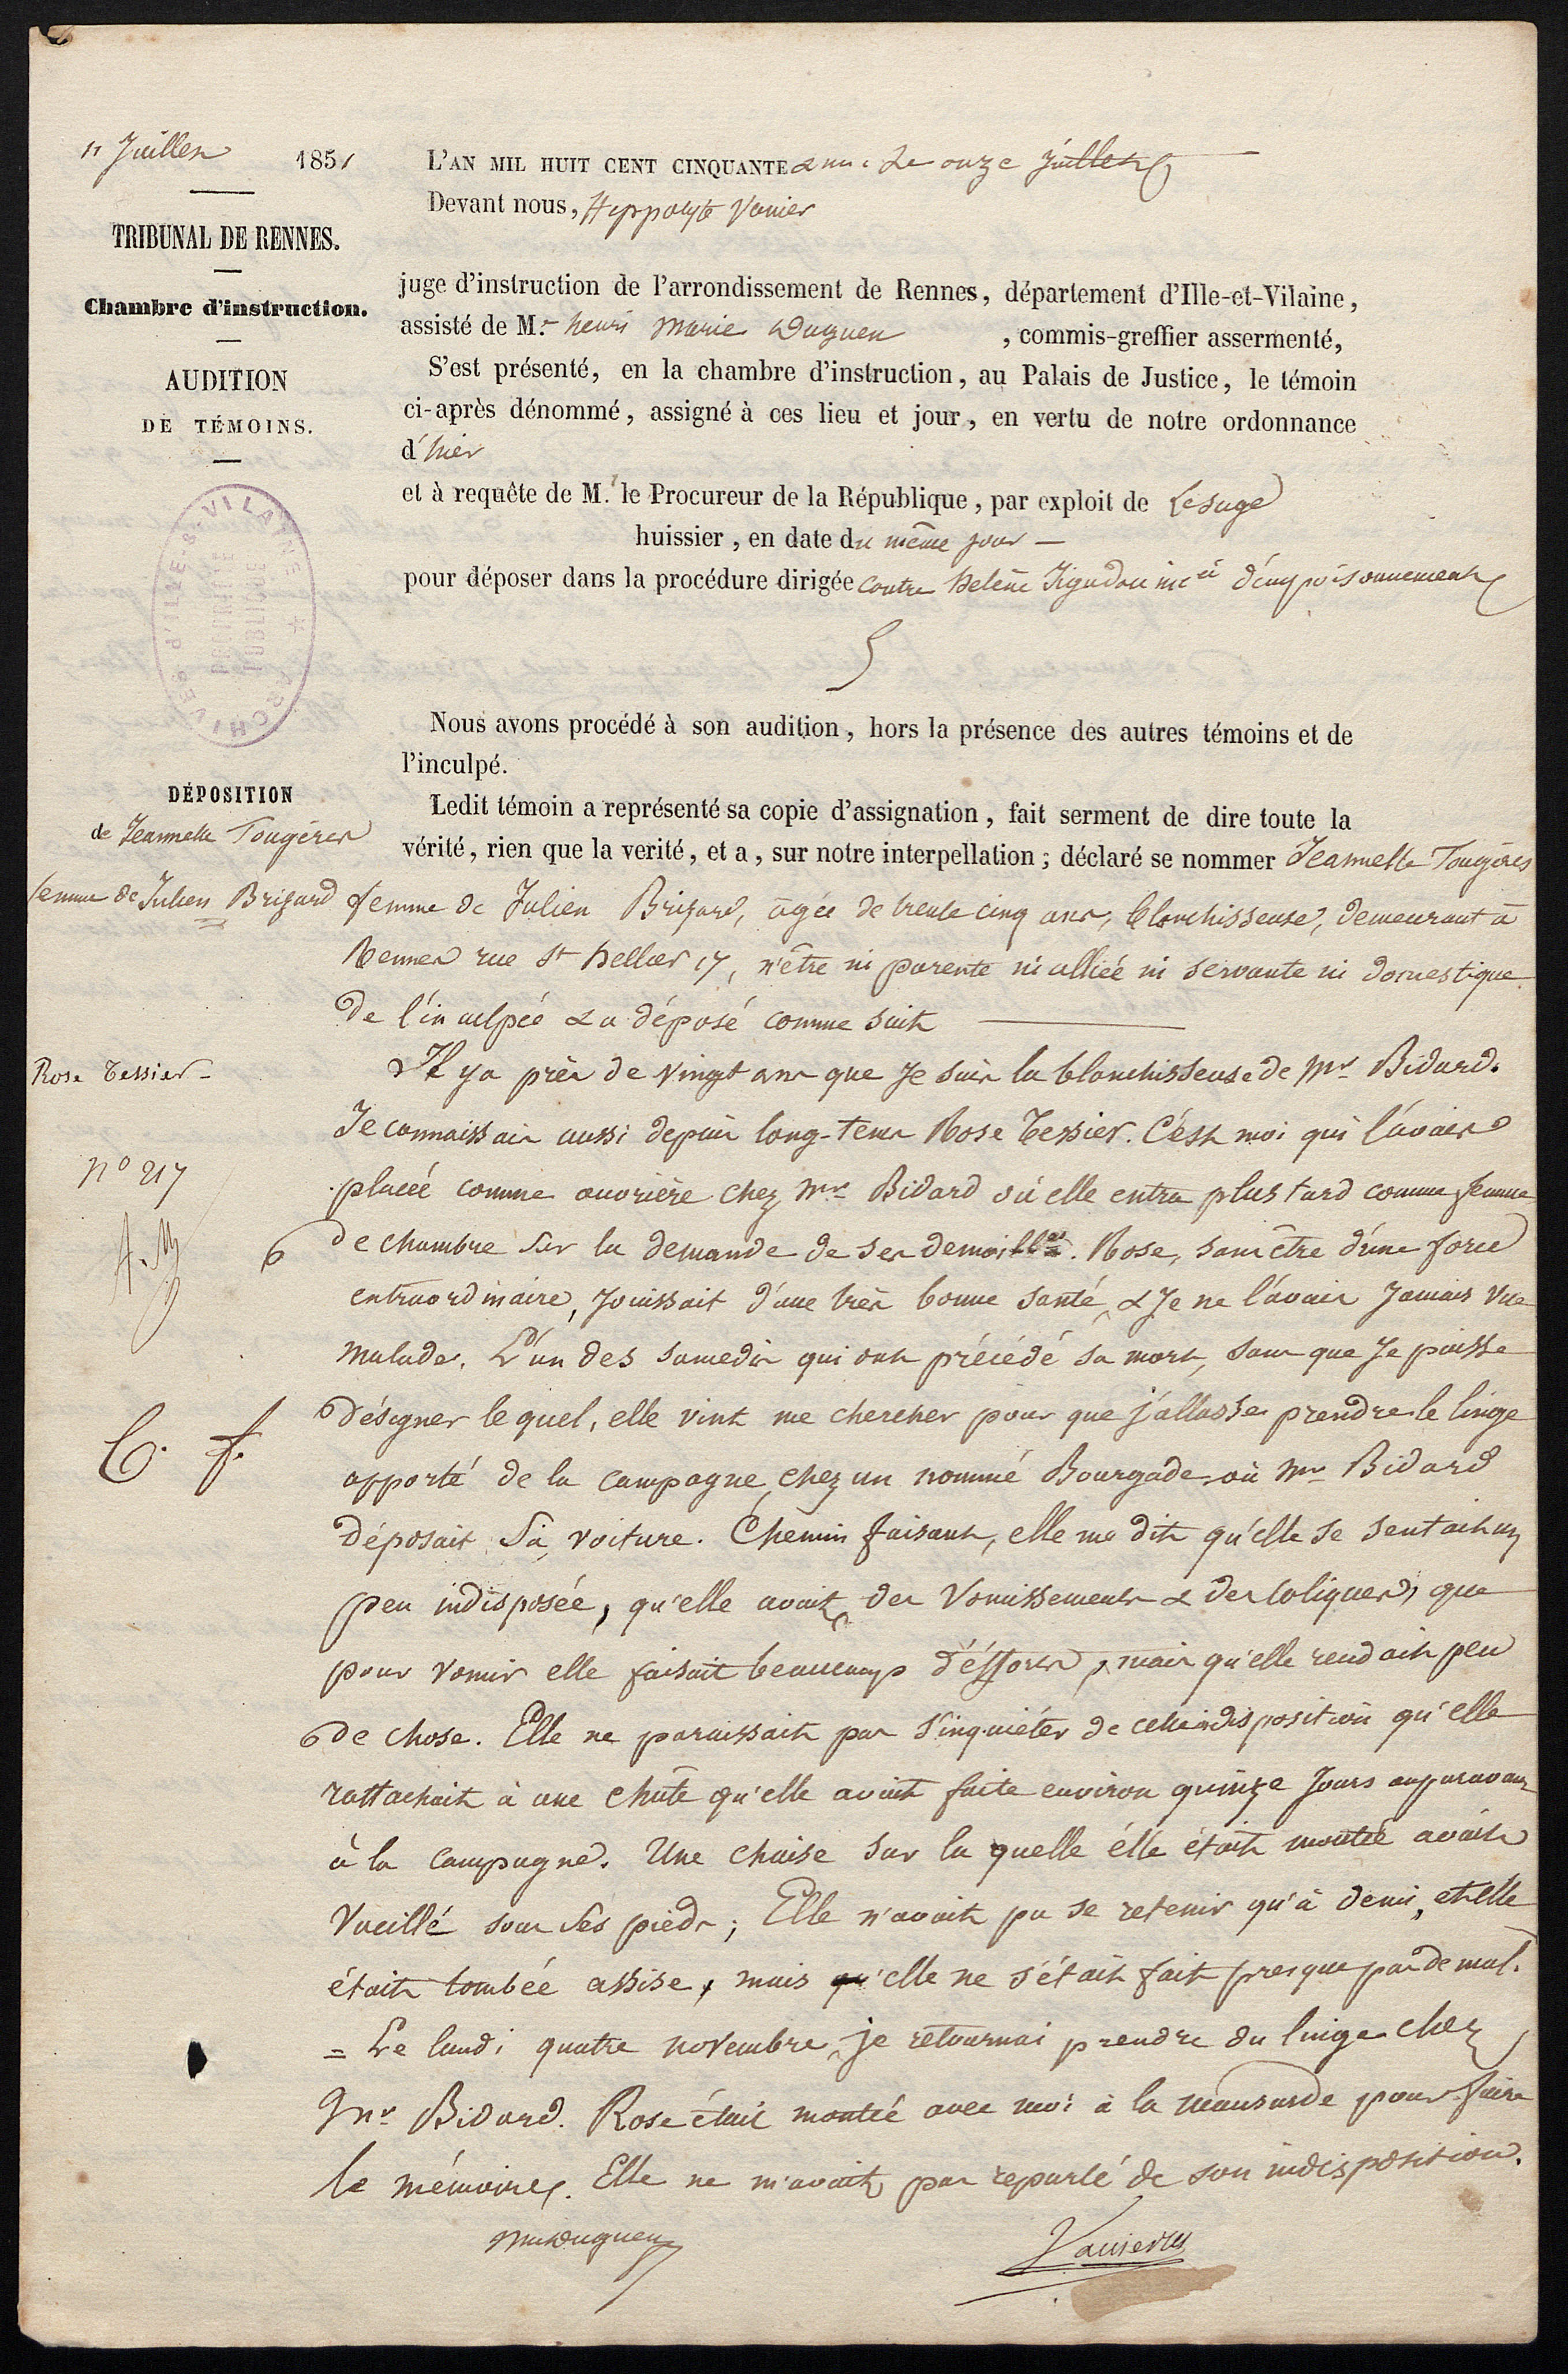 11 Juillet 1851
TRIBUNAL DE RENNES.
Chambre d'instruction.
AUDITION
DE TÉMOINS.
ARCHIVES D'ILLE-&-VILAINE
PROPRIÉTÉ
PUBLIQUE
L'AN MIL HUIT CENT CINQUANTE & un. Le onze juillet
Devant nous, Hippolyte Vanier
juge d'instruction de l'arrondissement de Rennes, département d'Ille-et-Vilaine,
assisté de M.r henri Marie Duguen , commis-greffier assermenté,
S'est présenté, en la chambre d'instruction, au Palais de Justice, le témoin
ci-après dénommé, assigné à ces lieu et jour, en vertu de notre ordonnance
d'hier
et à requête de M.r le Procureur de la République, par exploit de Lesage
huissier, en date du même jour —
pour déposer dans la procédure dirigée contre helène Jégadou inc.ée d'empoisonnement
Nous avons procédé à son audition, hors la présence des autres témoins et de
l'inculpé.
DÉPOSITION
de Jeannette Fougères
femme de Julien Brizard
Ledit témoin a représenté sa copie d'assignation, fait serment de dire toute la
vérité, rien que la verité, et a, sur notre interpellation; déclaré se nommer Jeannette Fougères
femme de Julien Brizard, âgée de trente cinq ans, blanchisseuse, demeurant à
Rennes rue St hellier 17, n'être ni parente ni alliée ni servante ni domestique
de l'inculpée & a déposé comme suit
Rose Tessier -
Il y a près de vingt ans que je suis la blanchisseuse de Mr Bidard.
Je connaissais aussi depuis long-tems Rose Tessier. C'est moi qui l'avais
N° 217
placée comme ouvrière chez Mr Bidard où elle entra plus tard comme femme
de chambre sur la demande de ses demoiselles. Rose, sans être d'une force
extraordinaire, jouissait d'une très bonne santé, & je ne l'avais jamais vue
malade. L'un des samedis qui ont précédé sa mort, sans que je puisse
désigner lequel, elle vint me chercher pour que j'allasse prendre le linge
apporté de la campagne, chez un nommé Bourgade où Mr Bidard
déposait sa voiture. Chemin faisant, elle me dit qu'elle se sentait un
peu indisposée, qu'elle avait des vomissements & des coliques, que
pour vomir elle faisait beaucoup d'éfforts, mais qu'elle rendait peu
de chose. Elle ne paraissait pas s'inquiéter de cette indisposition qu'elle
rattachait à une chûte qu'elle avait faite environ quinze jours auparavant
à la campagne. Une chaise sur la quelle elle était montée avait
vacillé sous ses pieds; Elle n'avait pu se retenir qu'à demi, et elle
était tombée assise, mais qu'elle ne s'était fait presque pas de mal.
= Le lundi quatre novembre, je retournai prendre du linge chez
Mr Bidard. Rose était montée avec moi à la mansarde pour faire
le mémoire. Elle ne m'avait pas reparlé de son indisposition.
Duguen
Vanier